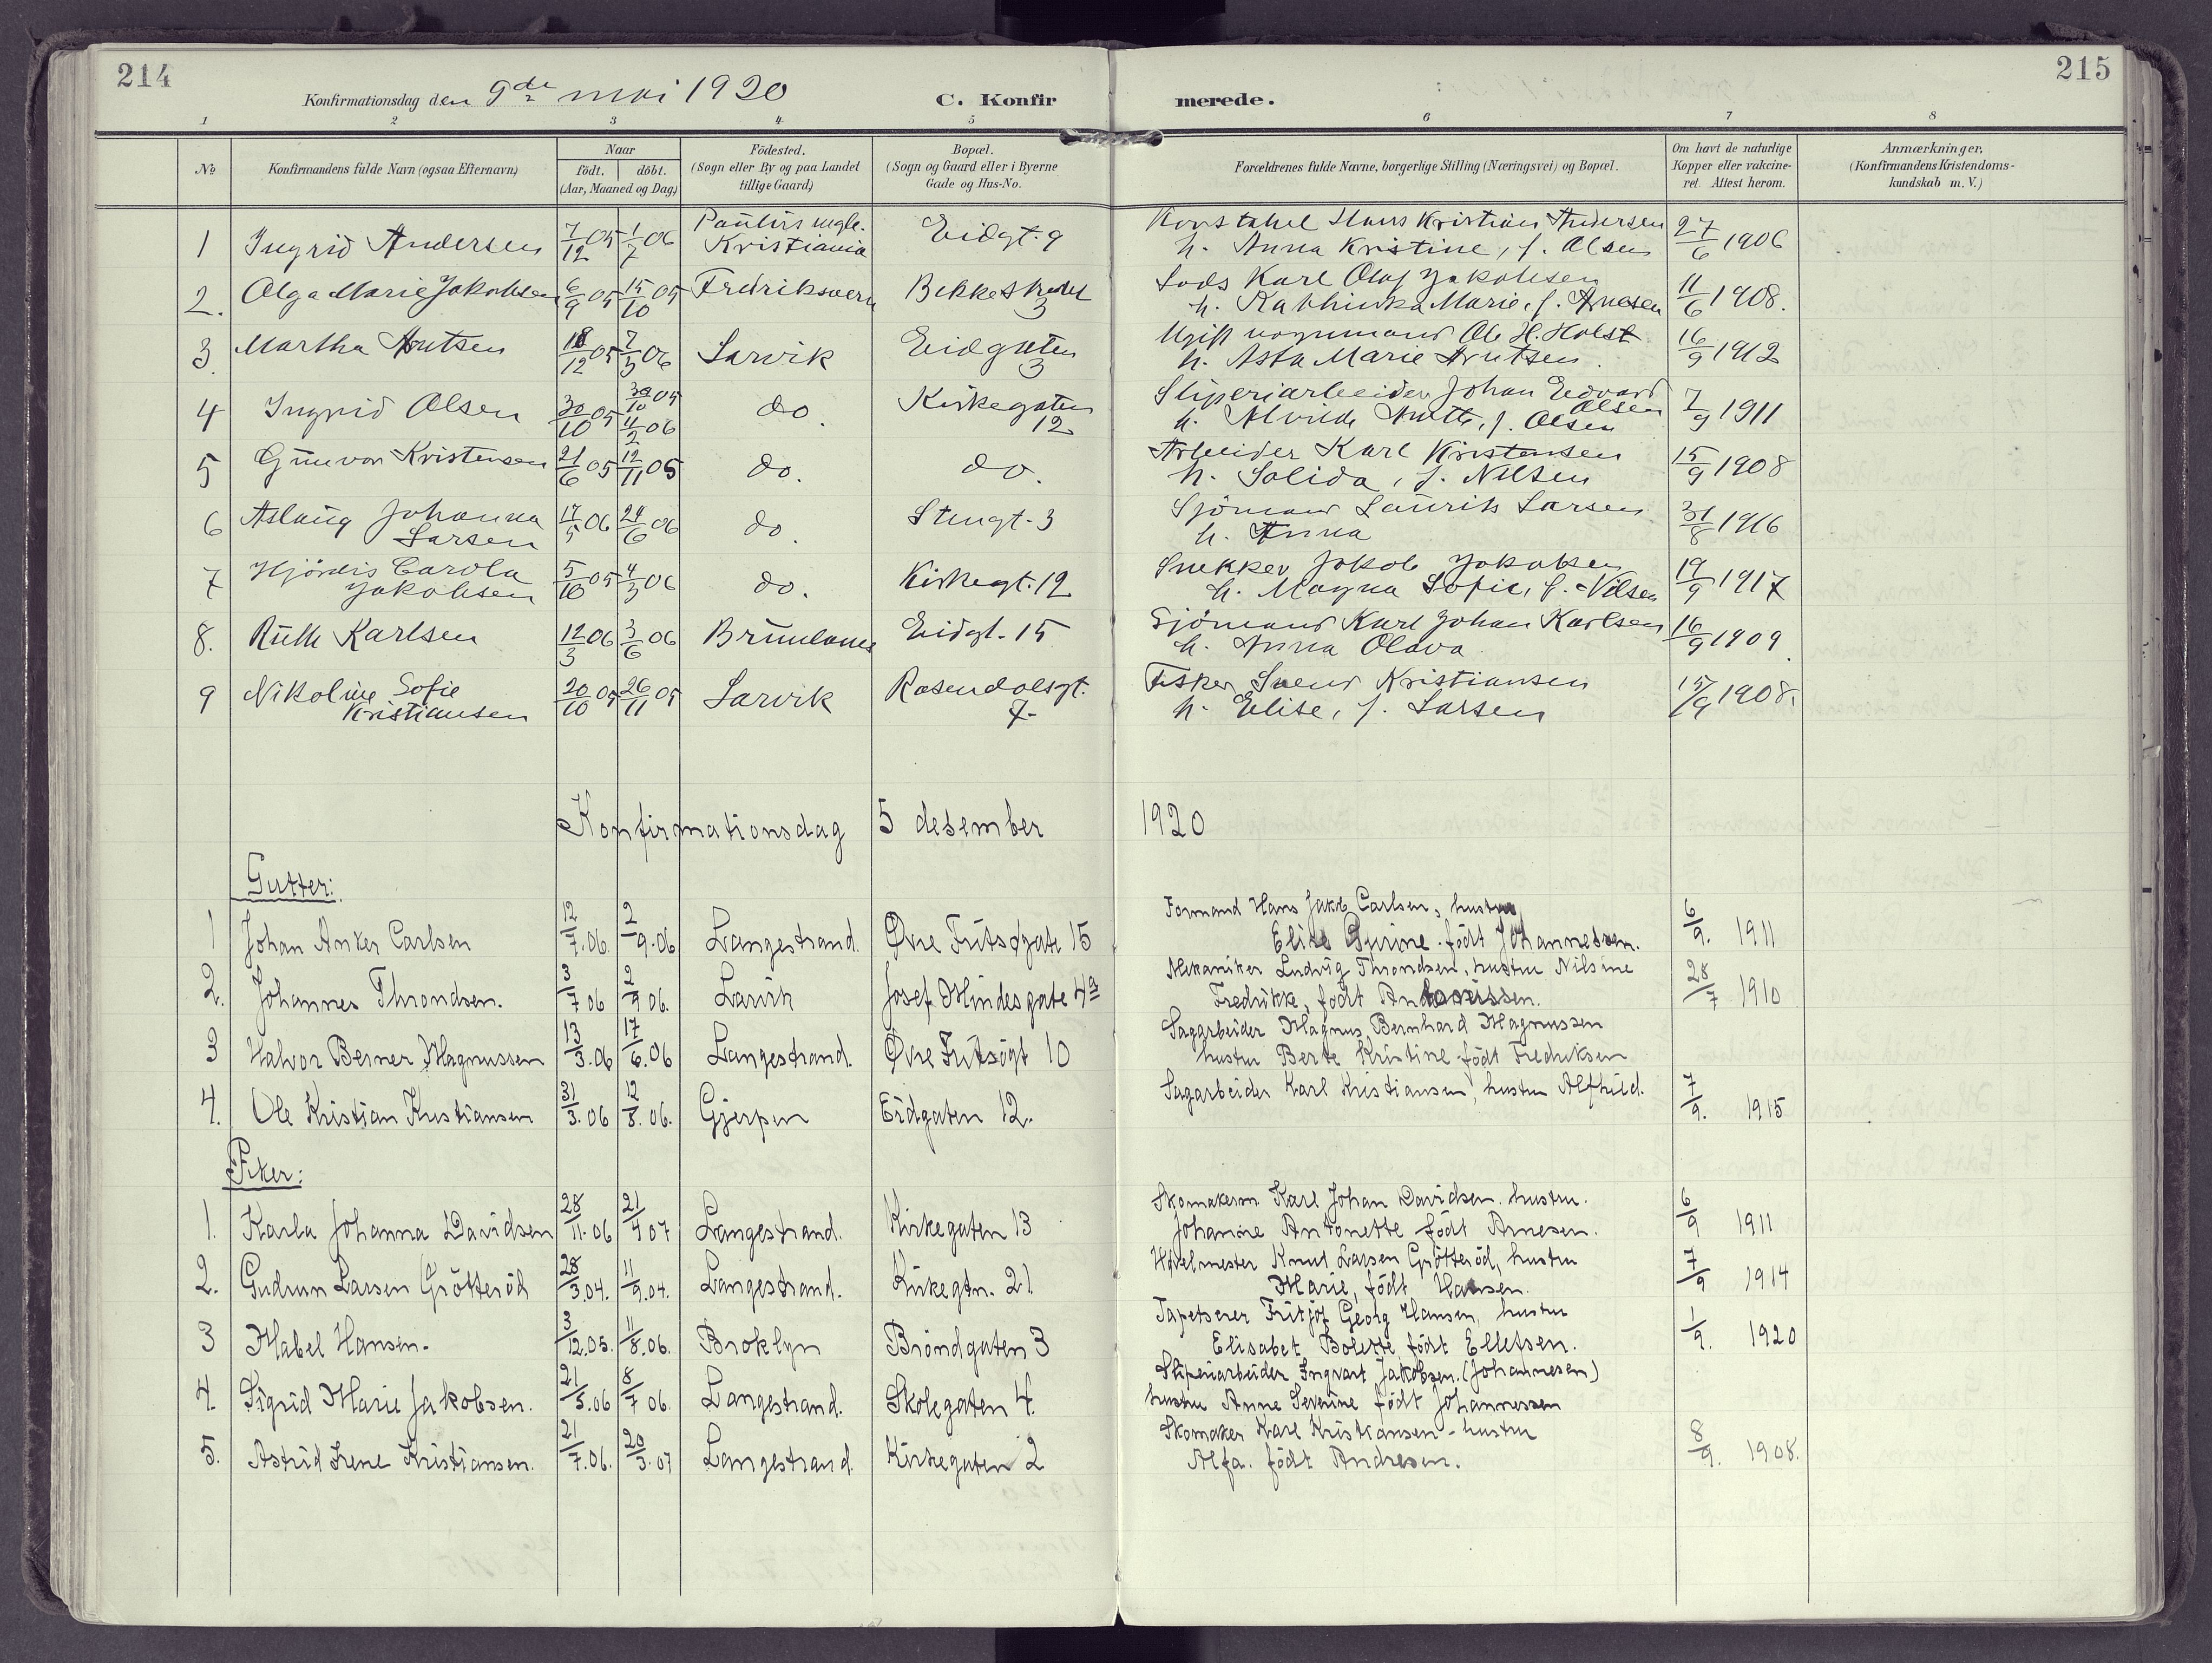 214
215
Konfirmationsdag den 9de mai 1920
C. Konfirmerede.
1 2 3 4 5 6 7 8
No
Konfirmandens fulde Navn (ogsaa Efternavn)
Naar
födt. döbt.
(Aar, Maaned og Dag)
Födested.
(Sogn eller By og paa Landet
tillige Gaard)
Bopæl.
(Sogn og Gaard eller i Byerne
Gade og Hus-No.
Forældrenes fulde Navne, borgerlige Stilling (Næringsvei) og Bopæl.
Om havt de naturlige
Kopper eller vakcine-
ret Attest herom.
Anmærkninger.
(Konfirmandens Kristendoms-
kundskab m. V.)
1 Ingrid Andersen 7/12 05 1/7 06 Paulus mgh. Kristiania Eidgt. 9 Konstabel Hans Kristian Andersen
h. Anna Kristine, f. Olsen 27/6 1906
2. Olga Marie Jakobsen 6/9 05 15/10 05 Fredriksvern Bekkestredet 3 Lods Karl Olaf Jakobsen
h. Kathinka Marie, f. Arnesen 11/6 1908.
3. Martha Arntsen 18/12 05 Larvik Eidgaten 3 Ugift vognmand Ole H. Holst
h. Asta Marie Arntsen 16/9 1912
4 Ingrid Olsen 30/10 05 30/10 05 11/2 06 do. Kirkegaten 12 Sliperiarbeider Johan Edvard Olsen
h. f. Olsen 7/9 1911
5 Gunvor Kristensen 21/6 05 12/11 05 do. do. Arbeider Karl Kristensen
h. Solida, f. Nilsen 15/9 1908
6 Aslaug Johanna Larsen 17/5 06 24/6 06 do. Stengt. 3 Sjömand Laurits Larsen
h. Anna 31/8 1916
7 Hjördis Carola Jakobsen 5/10 05 4/3 06 do. Kirkegt. 12 Snekker Jakob Jakobsen
h. Magna Sofie, f. Nilsen 19/9 1917
8. Ruth Karlsen 12/3 06 3/6 06 Brunlanes Eidgt. 15 Sjömand Karl Johan Karlsen
h. Anna Olava 16/9 1909.
9 Nikoline Sofie Kristiansen 20/10 05 26/11 05 Larvik Rosendalsgt. 7- Fisker Svend Kristiansen
h. Elise, f. Larsen 15/9 1908.
Konfirmationsdag 5 desember 1920
Gutter:
1 Johan Anker Carlsen 12/7.06. 2/9.06 Langestrand. Øvre Fritsøgate 15 Formand Hans Jakob Carlsen, hustru
Elise Gurine født Johannessen. 6/9. 1911
2. Johannes Throndsen. 3/7 06 2/9 06. Larvik Josef Hindes gate 4a Mekaniker Ludvig Throndsen, hustru Nilsine
Fredrikke, født 28/7 1910
3 Halvor Berner Magnussen 13/3.06 17/6.06 Langestrand. Øvre Fritsögt 10 Sagarbeider Magnus Bernhard Magnussen
hustru Berte Kristine födt Fredriksen
4. Ole Kristian Kristiansen 31/3.06 12/8.06. Gjerpen Eidgaten 12. Sagarbeider Karl Kristiansen, hustru Alfhild. 7/9. 1915
Piker:
1. Karla Johanna Davidsen 28/11.06 21/4 07 Langestrand. Kirkegaten 13 Skomakersv Karl Johan Davidsen. hustru.
Johanne Antonette födt Arnesen. 6/9 1911
2. Gudrun Larsen Grötteröd 28/3.04. 11/9.04. Langestrand. Kirkegtn. 21 Høvelmester Knut Larsen Grötteröd, hustru
Marie, födt Hansen. 7/9 1914
3 Mabel Hansen. 3/12.05. 11/8.06. Broklyn Bröndgaten 3 Tapetserer Fritjof Georg Hansen, hustru
Elisabet Bolette født Ellefsen. 1/9. 1920
4. Sigrid Marie Jakobsen. 21/5.06 8/7 06. Langestrand. Skolegaten 4. Sliperiarbeider Ingvart Jakobsen. (Johannesen)
hustru Anne Severine födt Johannessen
5. Astrid Irene Kristiansen. 21/7.06. 20/5.07 Langestrand. Kirkegaten 2 Skomaker Karl Kristiansen - hustru
Alfa. födt Andresen. 8/9. 1908.